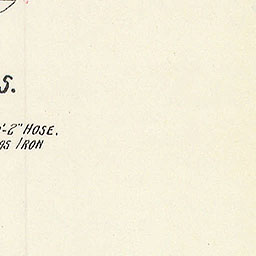 S.
'-2" HOSE,
IRON